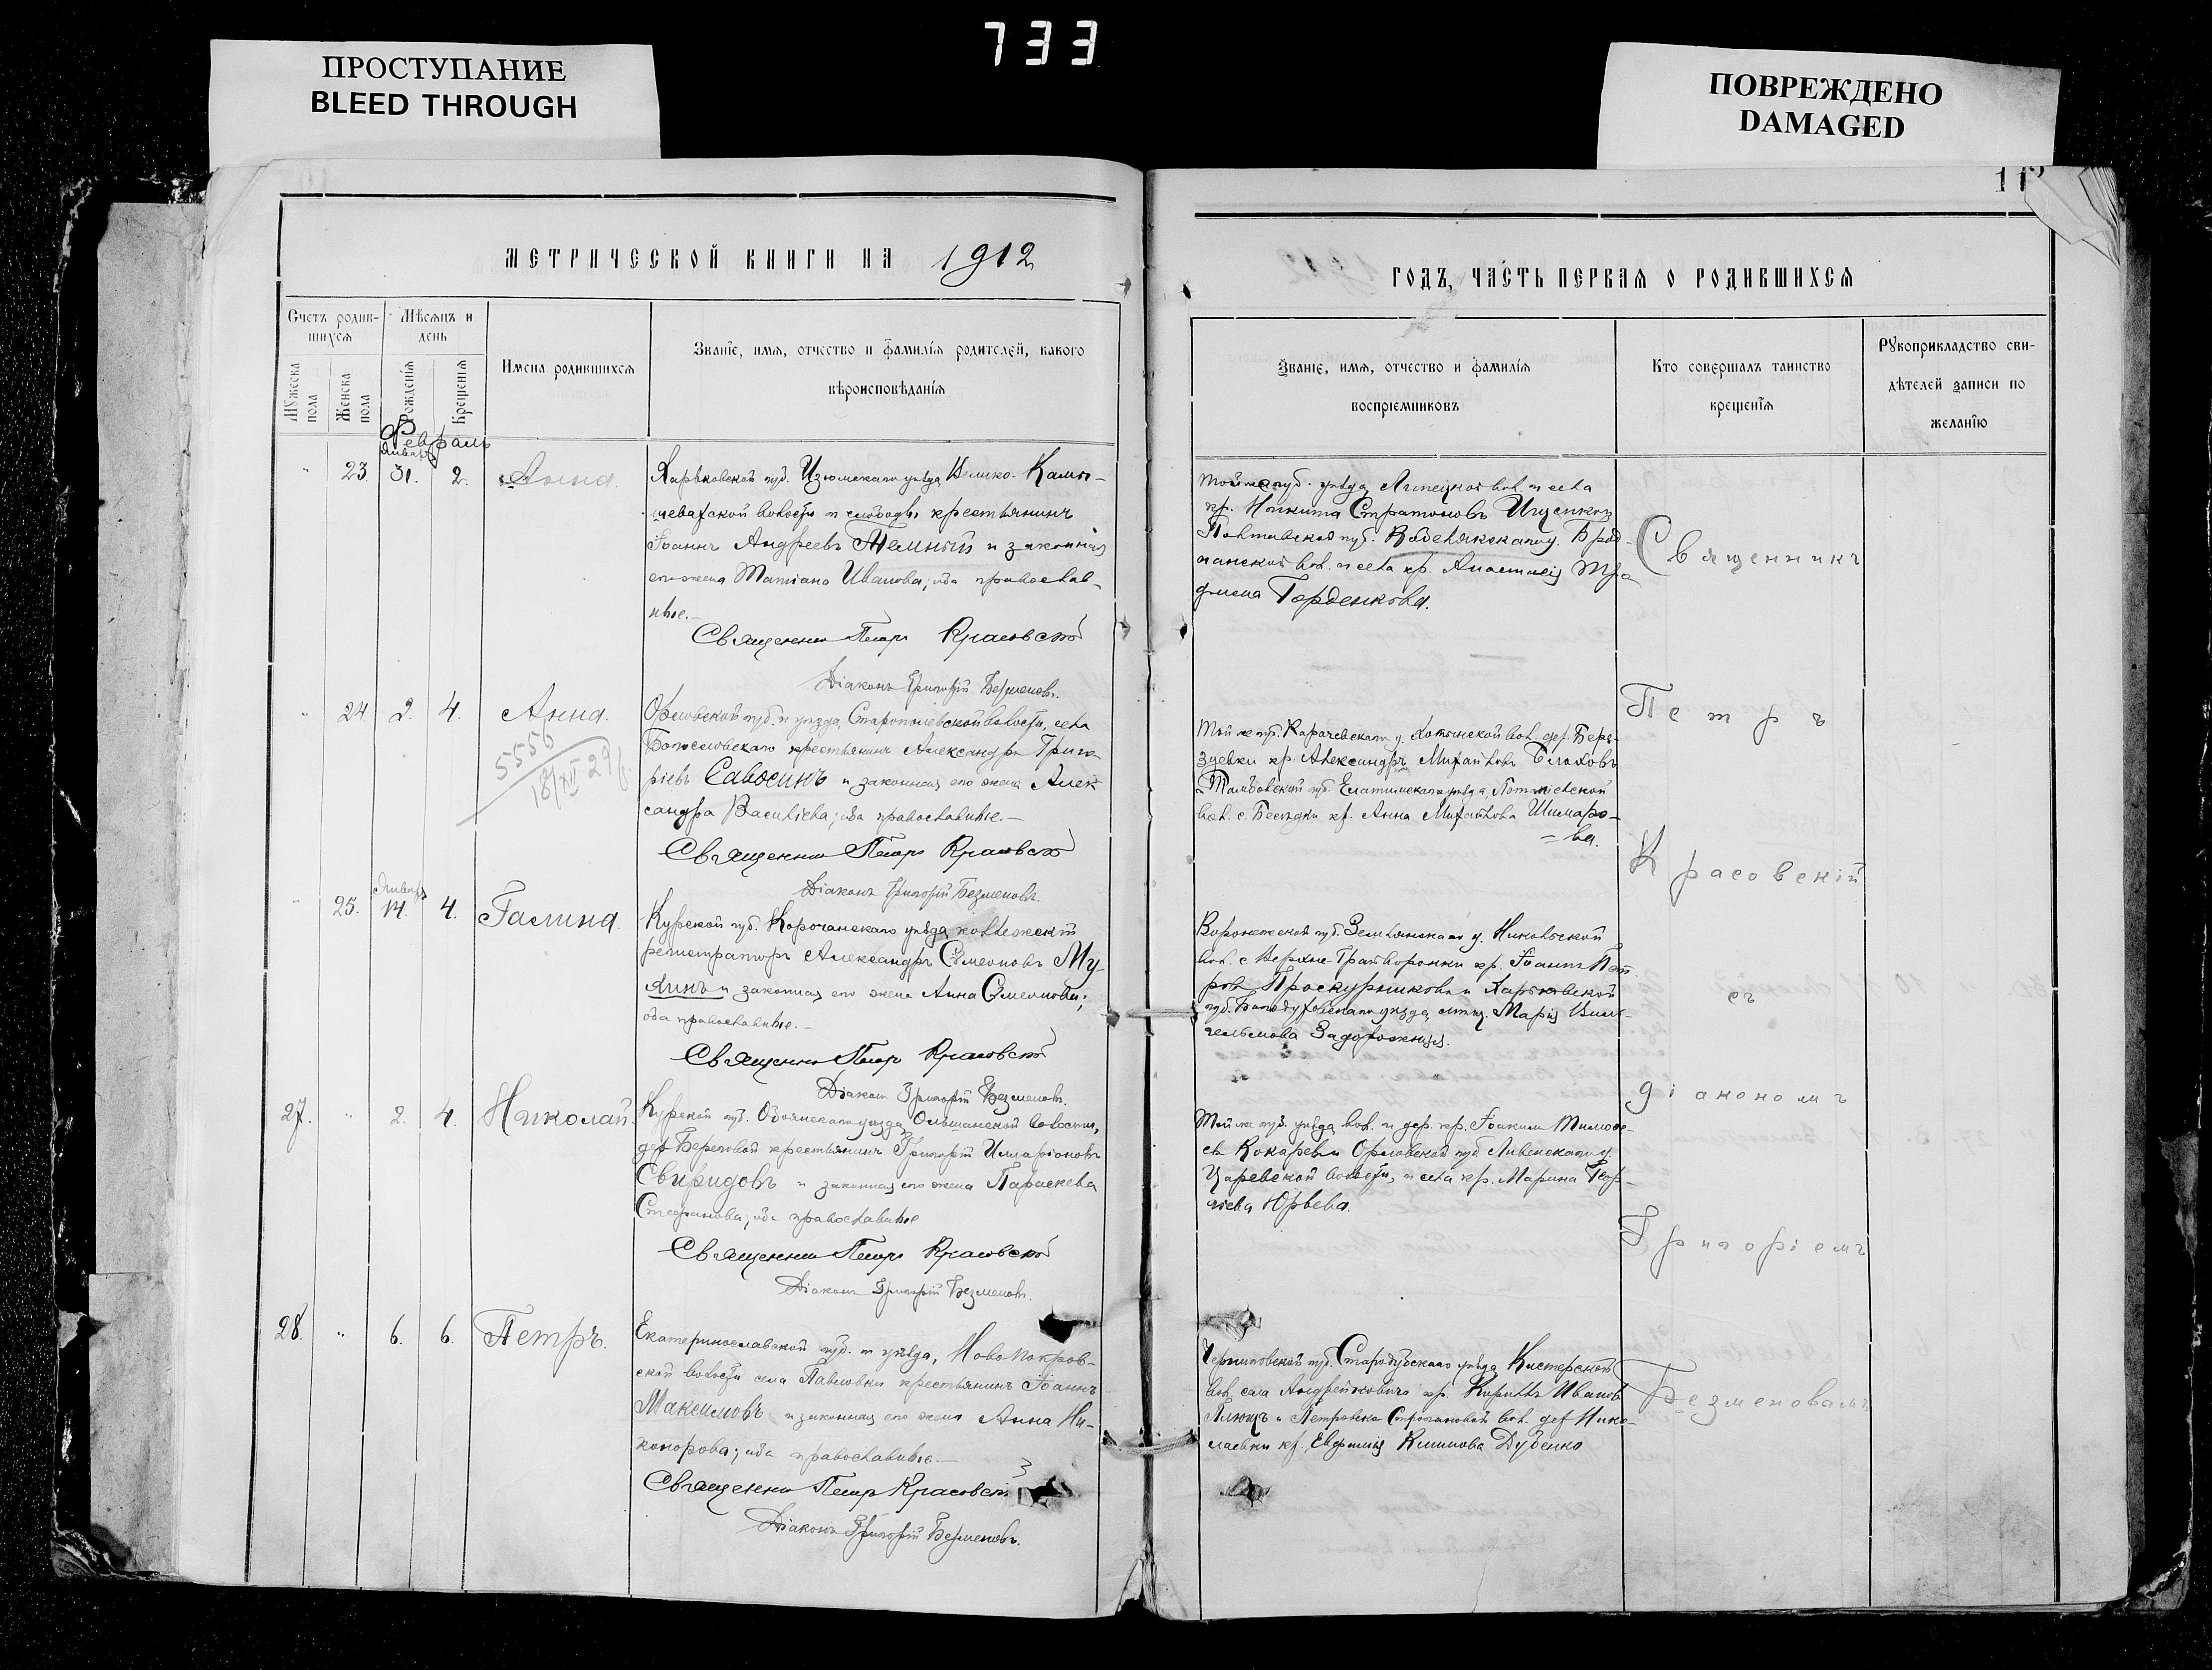 733
ПРОСТУПАНИЕ
BLEED THROUGH
ПОВРЕЖДЕНО
DAMAGED
11
МЕТРИЧЕСКОЙ КНИГИ НА 1912
ГОДЪ, ЧАСТЬ ПЕРВАЯ О РОДИВШИХСЯ
Счетъ родив-
шихся
Мѣсяцъ и
день
Мужеска пола
Женска пола
Рожденія
Крещенія
Имена родившихся
Званіе, имя, отчество и фамилія родителей, какого
вѣроисповѣданія
Званіе, имя, отчество и фамилія
воспріемниковъ
Кто совершалъ таинство
крещенія
Рукоприкладство сви-
дѣтелей записи по
желанію
Февраль
Январь
23. 31. 2. Анна.
Харьковской губ. Изюмскаго уѣзда Велико-Камы-
шевахской волости и слободы крестьянинъ
Іоаннъ Андреевъ Темный и законная
его жена Татіана Иванова; оба православ-
ные.
Священникъ Петръ Красовскій
Діаконъ Григорій Безменовъ.
той же губ. уѣзда, вол. и села
кр. Никита Стратоновъ Ищенко и
Полтавской губ. у.
вол. и села кр. Анастасія Тро
фимова Горденкова.
24. 2. 4. Анна.
5556
18/XII 29
Орловской губ. и уѣзда, волости, села
Богословскаго крестьянинъ Александръ Григо-
ріевъ Савосинъ и законная его жена Алек
сандра Васильева; оба православные.—
Священникъ Петръ Красовскій
Діаконъ Григорій Безменовъ.
Той же губ. Карачевскаго у. вол. дер. Бере-
зуевки кр. Александръ Михайловъ
Тамбовской губ. Елатомскаго уѣзда,
вол. с. Бесѣдки кр. Анна Михайлова Шимаро-
=ва.
Январь
25. 14. 4. Галина.
Курской губ. Корочанскаго уѣзда коллежскій
регистраторъ Александръ Сѵмеоновъ Му-
хинъ и законная его жена Анна Сѵмеонова;
оба православные.—
Священникъ Петръ Красовскій
Діаконъ Григорій Безменовъ.
Воронежской губ. Землянскаго у. Никольской
вол. с. Верхне-Грайворонки кр. Іоаннъ Пет
ровъ Проскурняковъ и Харьковской
губ. Богодуховскаго уѣзда, Марія Виль-
гельмова Задорожняя.
27. 2. 4. Николай.
Курской губ. Обоянскаго уѣзда Ольшанской волости,
дер. Береговой крестьянинъ Григорій Илларіоновъ
Свиридовъ и законная его жена Параскева
Стефанова; оба православные
Священникъ Петръ Красовскій
Діаконъ Григорій Безменовъ.
Той же губ. уѣзда, вол. и дер. кр. Іоакимъ Тимофе-
евъ Кокаревъ и Орловской губ. Ливенскаго у.
волости, и села кр. Марина Геор-
гіева Юрьева.
28. 6. 6. Петръ.
Екатеринославской губ. и уѣзда, Новопокров-
ской волости села Павловки крестьянинъ Іоаннъ
Максимовъ и законная его жена Анна Ни-
конорова; оба православные.—
Священникъ Петръ Красовскій
Діаконъ Григорій Безменовъ.
Черниговской губ. Стародубскаго уѣзда
вол. села Андрейковичи кр. Кириллъ Ивановъ
Плющъ и вол. дер. Нико-
лаевки кр. Евфимія Климова Дубенко
Священникъ
Петръ
Красовскій
съ
діакономъ
Григоріемъ
Безменовымъ